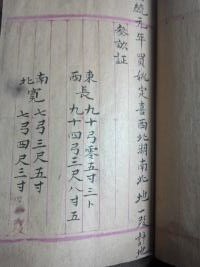 統元年買姚定喜西北郊南北地一段計地
發訖証
東長九十弓零五寸三卜
西 九十四弓三尺八寸五
南寬七弓三尺五寸
北 七弓四尺三寸